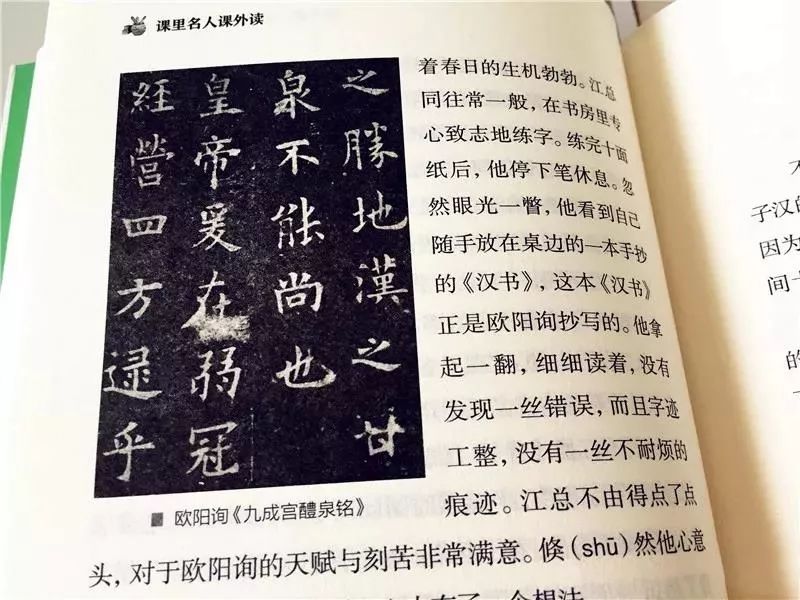 课里名人课外读
之勝地漢之甘
泉不能尚也
皇帝爰在弱冠
經營四方逮乎
欧阳询《九成宫醴泉铭》
着春日的生机勃勃。江总
同往常一般，在书房里专
心致志地练字。练完十面
纸后，他停下笔休息。忽
然眼光一瞥，他看到自己
随手放在桌边的一本手抄
的《汉书》，这本《汉书》
正是欧阳询抄写的。他拿
起一翻，细细读着，没有
发现一丝错误，而且字迹
工整，没有一丝不耐烦的
痕迹。江总不由得点了点
头，对于欧阳询的天赋与刻苦非常满意。倏（shū）然他心意
有了一个想法
子汉的
因为
间
的